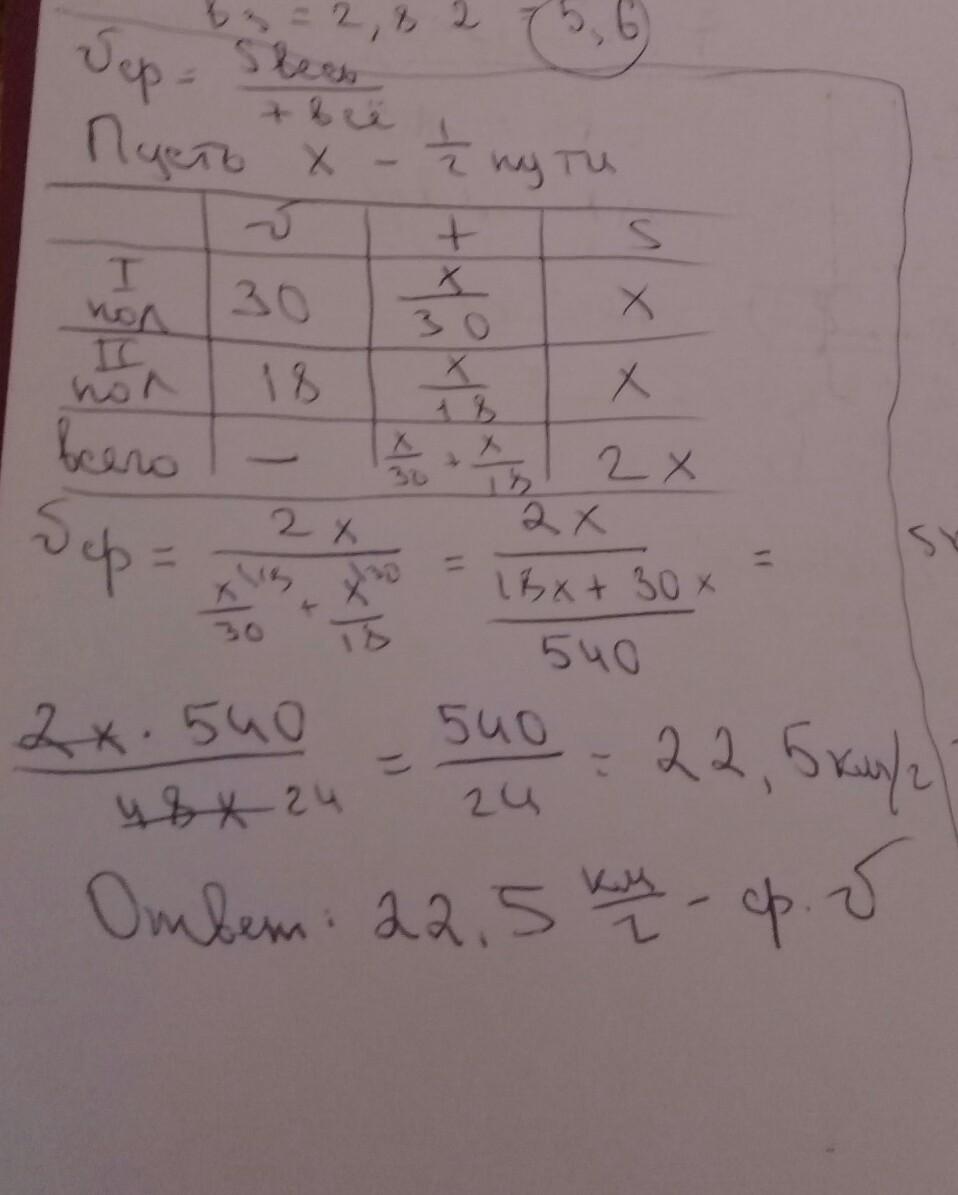 b₃ = 2,8 2 = 5,6
v ср = S весь / t всё
Пусть x - 1/2 пути
v t S
I пол 30 x/30 x
II пол 18 x/18 x
всего — x/30 + x/18 2x
v ср = 2x / (x\18/30 + x\30/18) = 2x / ((18x + 30x)/540) =
2x · 540 / 48x 24 = 540/24 = 22,5 км/г
Ответ: 22,5 км/г - ср. v